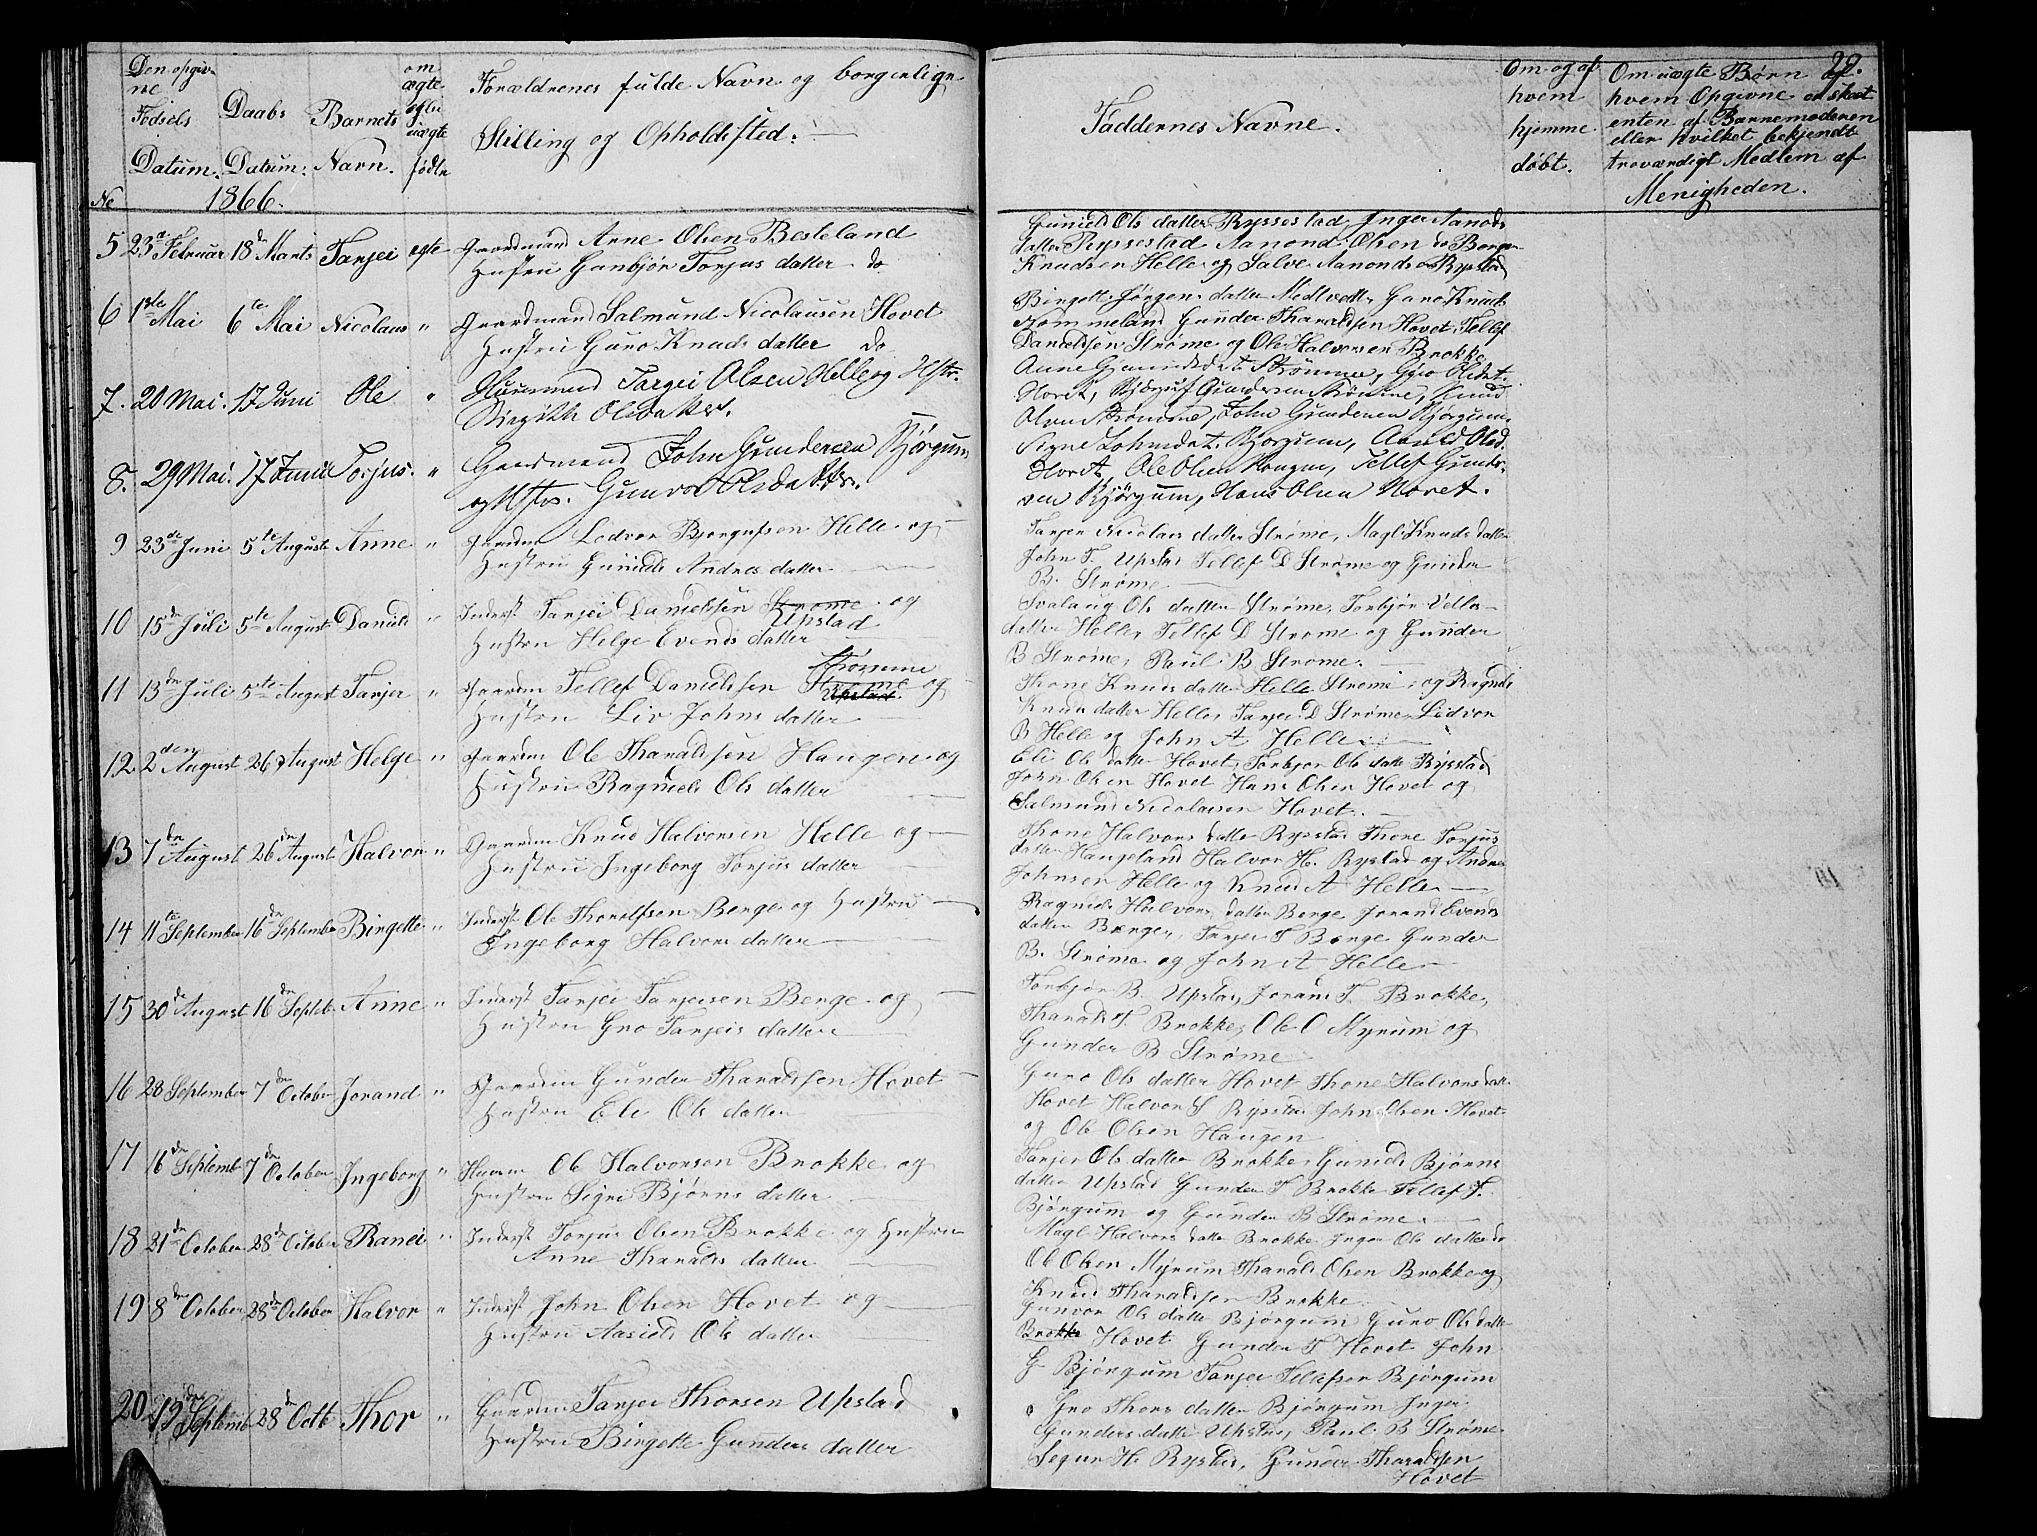 29.
Den opgiv-
ne
Fødsels
Datum.
Daabs
Datum:
Barnets
Navn.
om
ægte
eller
uægte
fødte
Forældrenes fulde Navn og borgerlige
Stilling og Opholdssted:
Faddernes Navne.
Om og af
hvem
hjemme
døbt.
Om uægte Børn af
hvem Opgivne er skeet
enten af Barnemoderen
eller hvilket bekjendt
troværdigt Medlem af
Menigheden.
No
1866.
5 23de Februar 18de Marts Tarjei egte Gaardmand Anne Olsen Besteland
Hustru Gunbjør Torjus datter do
Gunild Ols datter Ryssestad, Inger Aanonds
datter Ryssestad Aanond Olsen do Borger
Knudsen Helle og Salve Aanondsen Rystad
6 1ste Mai 6te Mai Nicolaus " Gaardmand Salmund Nicolausen Hovet
Hustru Guro Knuds datter do
Birgett Jørgens datter Guro Knuds
Nommeland Gunder Tharaldsen Hovet Tellef
Danieldsen Strøme og Ole Halvorsen Brokke
7. 20 Mai. 17 Juni Ole " Huusmand Targei Olsen Helle og Hstr.
Birgith Olsdatter.
Anne Strømme, Gyro Olsdt.
Hovet, Bjørguf Gundersen Strømme, Knud
Olsen Strømme, John Gundersen Bjørgum.
8. 29 Mai. 17 Juni Torjus. " Gaardmand John Gundersen Bjørgum
og Hstr. Gunvor Olsdatter.
Signe Johnsdat. Bjørgum, Asuld Olsd.
Hovet, Ole Olsen Haugen, Tellef Gunder-
sen Bjørgum, Hans Olsen Hovet.
9 23de Juni 5te August Anne " Gaardm Ledvor Bjorgufsen Helle og
Hustru Gunild Andres datter
Tarjer Nicolais datter Strøme, Magl Knuds datter
John T. Upstad Tellef D Strøme og Gunder
B. Strøme
10 15de Juli 5te August Daniel " Inderst Tarjei Danielsen Strøme og
Upstad
Hustru Helge Evends datter
Svalaug Ols datter Strøme, Torbjør Vella-
datter Helle, Tellef D Strøme og Gunder
B Strøme, Paul B Strøme.
11 13de Juli 5te August Tarjer " Gaardm Tellef Danieldsen Strøme og
Strømme
Upstad.
Hustru Liv Johns datter
Thone Knuds datter Helle Strøme, og Ragnild
Knuds datter Helle, Tarjei D Strøme Ledvor
B Helle og John A Helle
12. 2den August 26de August Helge " Gaardm Ole Tharaldsen Haugen og
Hustru Ragnild Ols datter
Eli Ols datter Hovet, Torbjor Ols datter Rysstad
John Olsen Hovet Hans Olsen Hovet og
Salmund Nicolaisen Hovet.
13 7de August 26de August Halvor " Gaardm Knud Halvorsen Helle og
Hustru Ingeborg Torjus datter
Thone Halvors datter Rysstad Thone Torjus
datter Haugeland Halvor H. Rystad og Andres
Johnsen Helle og Knud A Helle
14 11te September 16de September Birgette " Inderst Ole Thoralfsen Berge og Hustru
Ingeborg Halvors datter
Ragnild Halvors datter Berge, Jorand Evends
datter Berge, Tarjer T Berge Gunder
B. Strøme og John A Helle
15 30de August 16de Septeb Anne " Inderst Tarjei Tarjeisen Berge og
Hustru Gro Tarjeis datter
Torbjør B. Upstad, Joran T. Brokke,
Tharald T. Brokke, Ole O Myrum og
Gunder B Strøme
16 28 September 7de October Jorand " Gaardm Gunder Tharaldsen Hovet
Hustru Eli Ols datter
Guro Ols datter Hovet Thone Halvors datt.
Hovet Halvor S Rysstad John Olsen Hovet
og Ole Olsen Haugen
17 16de Septemb 7de October Ingeborg " Huusm Ole Halvorsen Brokke og
Hustru Signe Bjørns datter
Tarjer Ols datter Brokke, Gunild Bjørns
datter Upstad Gunder T Brokke Tellef T.
Bjørgum og Gunder B Strøme.
18 21de October 28de October Ranei " Inderst Torjus Olsen Brokke og Hustru
Anne Tharalds datter
Magl Halvors datter Brokke Inger Ols datter do
Ole Olsen Myrum Tharald Olsen Brokke og
Knud Tharaldsen Brokke
19 8de October 28de October Halvor " Inderst John Olsen Hovet og
Hustru Aasild Ols datter
Gunvor Ols datter Bjørgum, Guro Ols datter
Brokke Hovet Gunder T Hovet John
G Bjørgum Tarjei Tellefsen Bjørgum
20 13de Septemb 28de Octb Thor " Gaardm Tarjer Thorsen Upstad
Hustru Birgette Gunders datter
Gro Thors datter Bjørgum Inger
Gunders datter Upstad, Paul B Strøme
Segur H. Rystad, Gunder Tharaldsen
Hovet